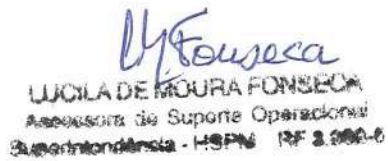 M. Fonseca
LUCILA DE MOURA FONSECA
Assessora de Suporte Operacional
Superintendência - HSPM RF